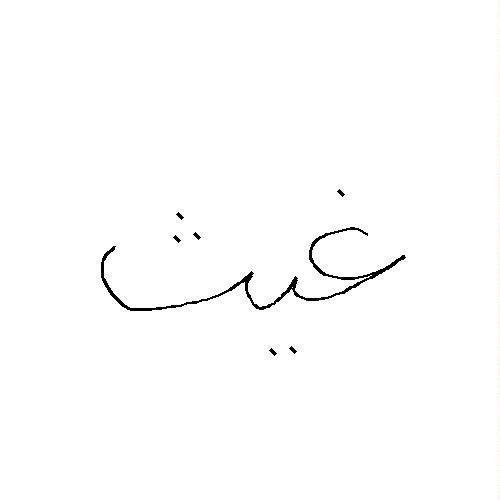 غيث